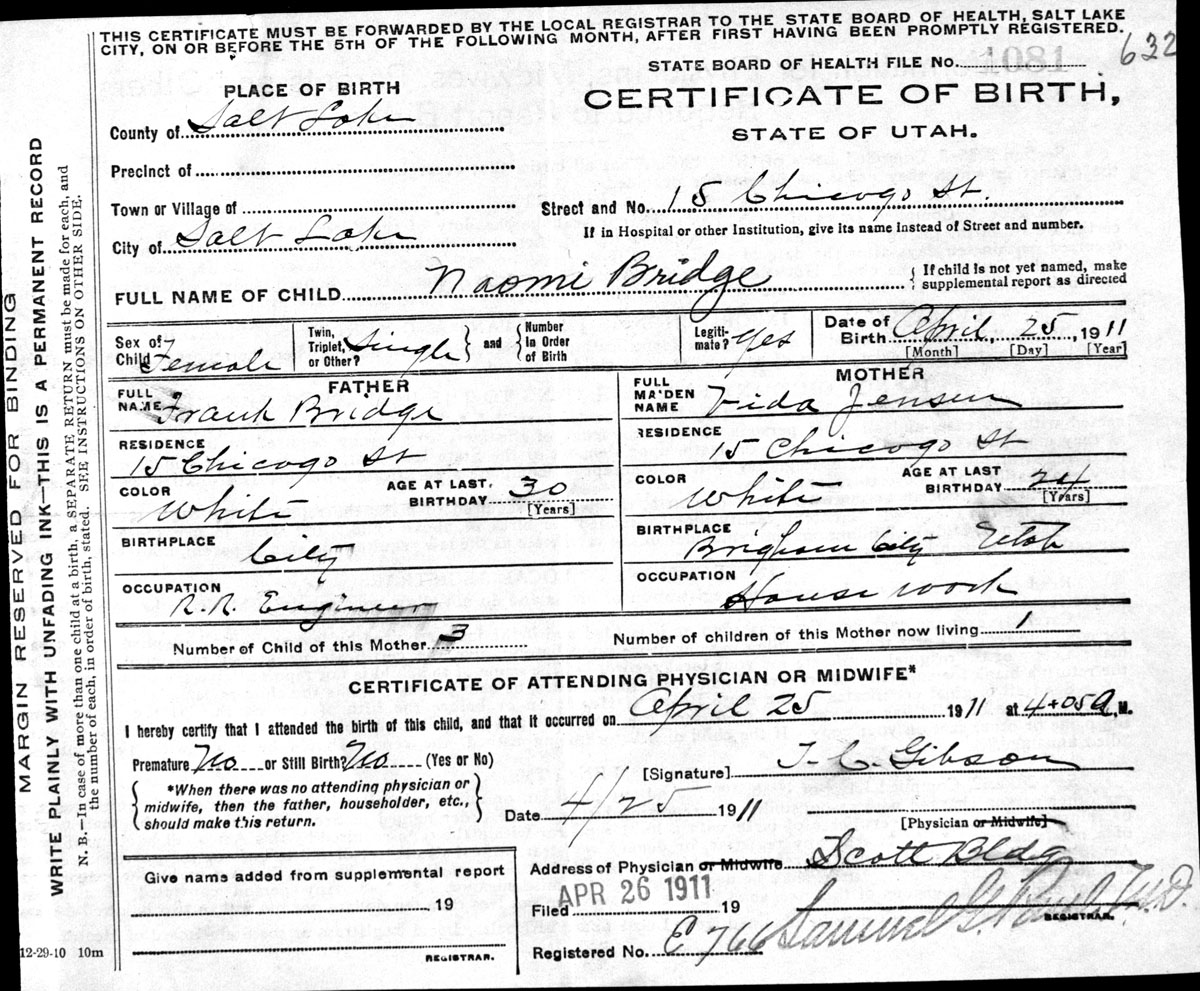 THIS CERTIFICATE MUST BE FORWARDED BY THE LOCAL REGISTRAR TO THE STATE BOARD OF HEALTH, SALT LAKE
CITY, ON OR BEFORE THE 5TH OF THE FOLLOWING MONTH, AFTER FIRST HAVING BEEN PROMPTLY REGISTERED.
632
STATE BOARD OF HEALTH FILE No. 1081
PLACE OF BIRTH
CERTIFICATE OF BIRTH,
STATE OF UTAH.
County of Salt Lake
Precinct of
Town or Village of
Street and No. 15 Chicago St.
City of Salt Lake
If in Hospital or other Institution, give its name instead of Street and number.
FULL NAME OF CHILD Naomi Bridge
{ If child is not yet named, make
supplemental report as directed
Sex of Child Female
Twin, Triplet, or Other? Single } and { Number In Order of Birth
Legiti-mate? Yes
Date of Birth April, 25, 1911
[Month] [Day] [Year]
FATHER
MOTHER
FULL NAME Frank Bridge
FULL MAIDEN NAME Vida Jensen
RESIDENCE
15 Chicago St
RESIDENCE
15 Chicago St
COLOR White
AGE AT LAST BIRTHDAY 30 [Years]
COLOR White
AGE AT LAST BIRTHDAY 24 [Years]
BIRTHPLACE
City
BIRTHPLACE
Brigham City Utah
OCCUPATION
R.R. Engineer
OCCUPATION
House work
Number of Child of this Mother 3
Number of children of this Mother now living 1
CERTIFICATE OF ATTENDING PHYSICIAN OR MIDWIFE*
I hereby certify that I attended the birth of this child, and that it occurred on April 25 1911 at 4+05 A. M.
Premature No or Still Birth? No (Yes or No)
[Signature] T. C. Gibson
{ *When there was no attending physician or
midwife, then the father, householder, etc.,
should make this return. }
Date 4/25 1911
[Physician or Midwife]
Give name added from supplemental report
19
REGISTRAR.
Address of Physician or Midwife Scott Bldg
Filed APR 26 1911 19
Samuel G. M.D.
REGISTRAR.
Registered No. C 766
12-29-10 10m
MARGIN RESERVED FOR BINDING
WRITE PLAINLY WITH UNFADING INK—THIS IS A PERMANENT RECORD
N. B.—In case of more than one child at a birth, a SEPARATE RETURN must be made for each, and
the number of each, in order of birth, stated. SEE INSTRUCTIONS ON OTHER SIDE.